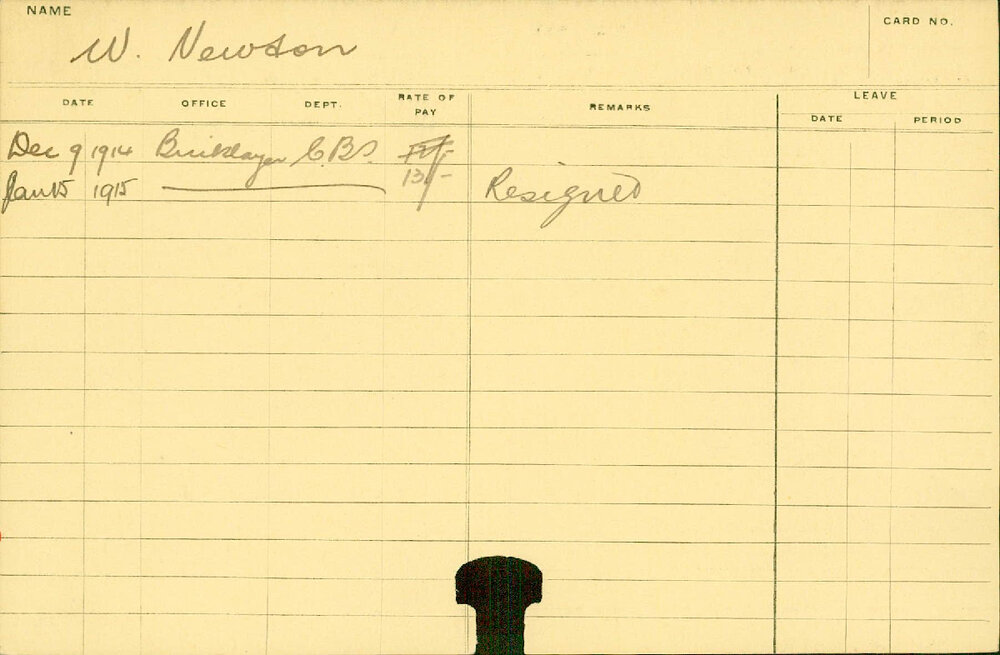 NAME
CARD NO.
W. Newton
DATE OFFICE DEPT. RATE OF PAY REMARKS LEAVE
DATE PERIOD
Dec 9 1914 Bricklayer
Jan 15 1915 13/- Resigned